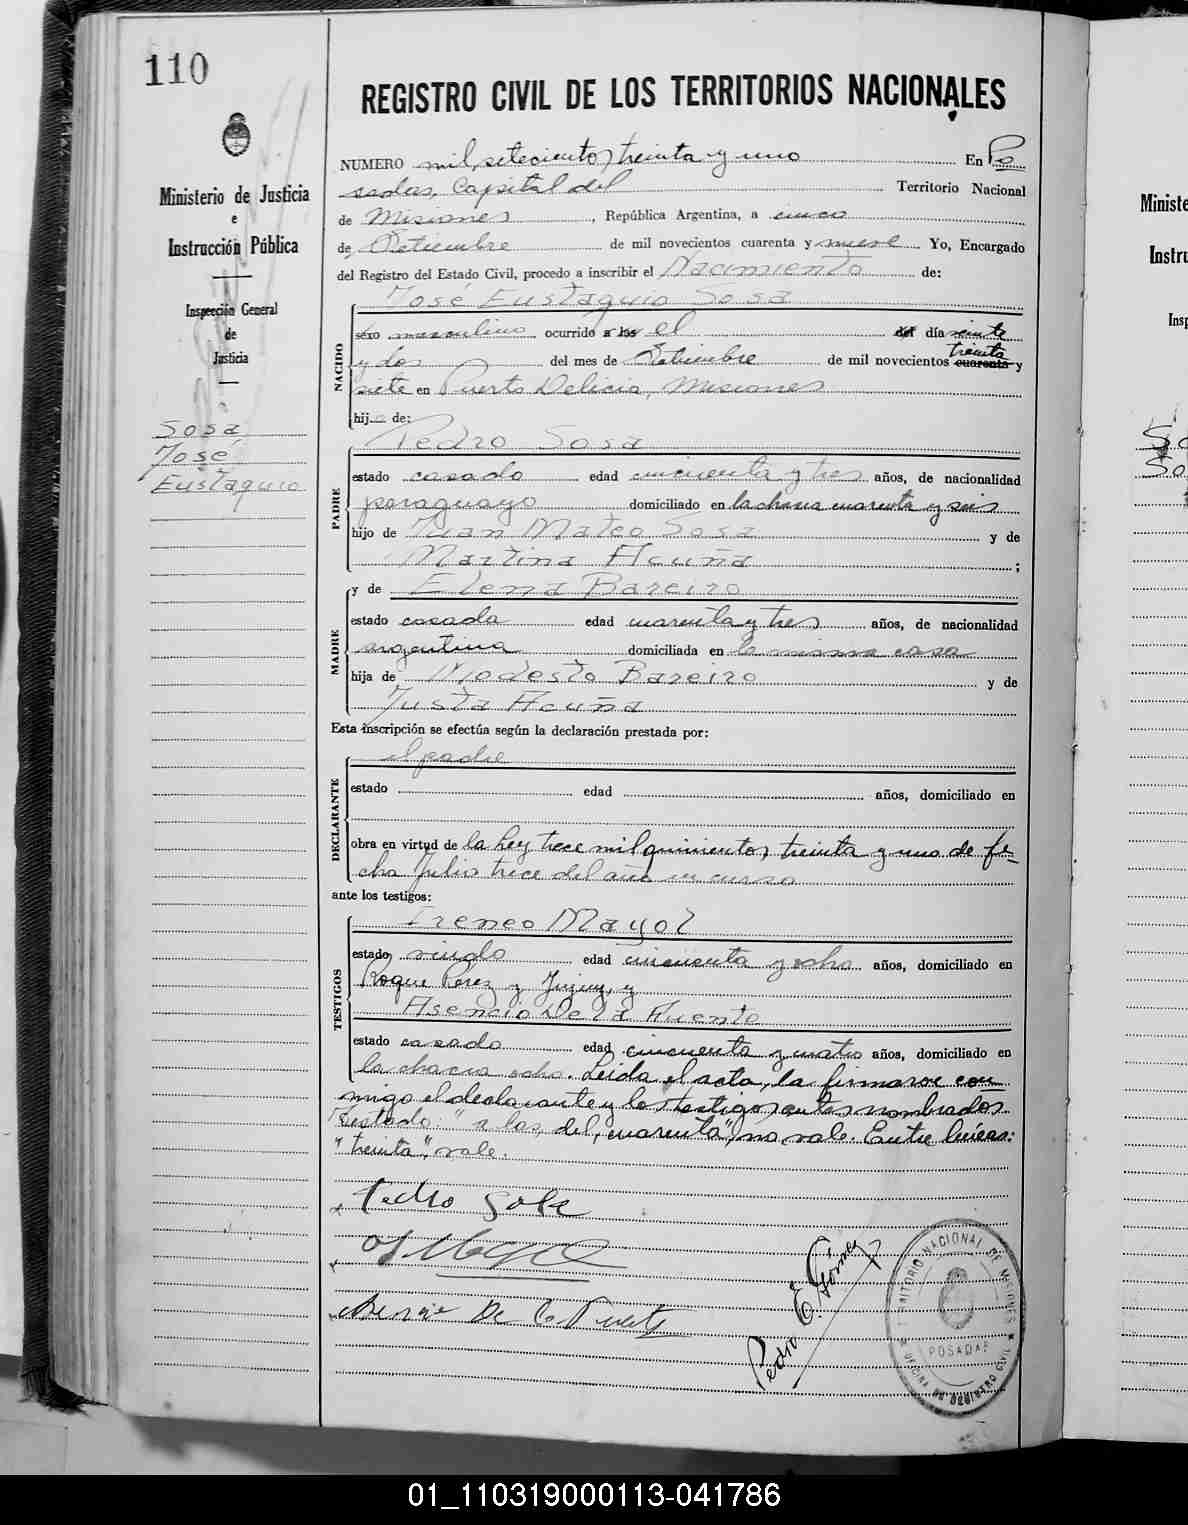 110
REGISTRO CIVIL DE LOS TERRITORIOS NACIONALES
Ministerio de Justicia
e
Instrucción Pública
Inspección General
de
Justicia
Sosa
José
Eustaquio
NUMERO mil setecientos treinta y uno En Po
sadas, Capital del Territorio Nacional
de Misiones, República Argentina, a cinco
de Setiembre de mil novecientos cuarenta y nueve Yo, Encargado
del Registro del Estado Civil, procedo a inscribir el Nacimiento de:
NACIDO
José Eustaquio Sosa
sexo masculino ocurrido a los el del día veinte
y dos del mes de Setiembre de mil novecientos cuarenta treinta y
siete en Puerto Delicia, Misiones
hijo de:
PADRE
Pedro Sosa
estado casado edad cincuenta y tres años, de nacionalidad
paraguayo domiciliado en la chacra cuarenta y seis
hijo de Juan Mateo Sosa y de
Martina Acuña;
MADRE
y de Elena Bareiro
estado casada edad cuarenta y tres años, de nacionalidad
argentina domiciliada en la misma casa
hija de Modesto Bareiro y de
Justa Acuña
Esta inscripción se efectúa según la declaración prestada por:
DECLARANTE
el padre
estado edad años, domiciliado en
obra en virtud de la Ley trece mil quinientos treinta y uno de fe-
cha Julio trece del año en curso
ante los testigos:
TESTIGOS
Ireneo Mayol
estado viudo edad cincuenta y ocho años, domiciliado en
Roque Pérez y Jujuy, y
Asencio De la Fuente
estado casado edad cincuenta y cuatro años, domiciliado en
la chacra ocho. Leida el acta, la firmaron con
migo el declarante y los testigos antes nombrados.
Testado: "a los, del, cuarenta", no vale. Entre líneas:
"treinta", vale.
Pedro Sosa
De la Fuente
Pedro E. Gómez
TERRITORIO NACIONAL DE MISIONES
POSADAS
OFICINA DE REGISTRO CIVIL
Ministe
Instru
Insp
So
So
01_110319000113-041786